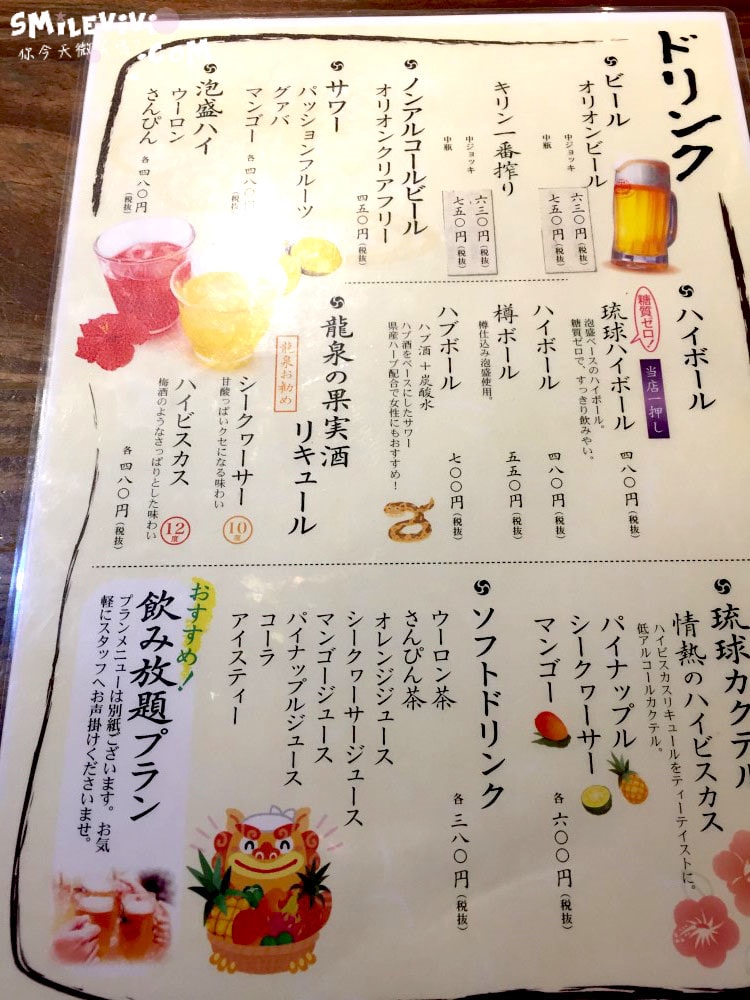 SMiLEViVi
你今天微
.COM
ドリンク
ビール
オリオンビール
中ジョッキ 六三〇円(税抜)
中瓶 七五〇円(税抜)
キリン一番搾り
中ジョッキ 六三〇円(税抜)
中瓶 七五〇円(税抜)
ノンアルコールビール
オリオンクリアフリー
四五〇円(税抜)
サワー
パッションフルーツ
グァバ
マンゴー
各四八
(税抜)
泡盛ハイ
ウーロン
さんぴん
各四八〇円(税抜)
ハイボール
糖質ゼロ!
琉球ハイボール 四八〇円(税抜)
当店一押し
泡盛ベースのハイボール。
糖質ゼロで、すっきり飲みやい。
ハイボール 四八〇円(税抜)
樽ボール 五五〇円(税抜)
樽仕込み泡盛使用。
ハブボール 七〇〇円(税抜)
ハブ酒+炭酸水
ハブ酒をベースにしたサワー
県産ハーブ配合で女性にもおすすめ!
龍泉の果実酒
リキュール
龍泉お勧め
シークヮーサー 10度
甘酸っぱいクセになる味わい
ハイビスカス 12度
梅酒のようなさっぱりとした味わい
各四八〇円(税抜)
琉球カクテル
情熱のハイビスカス
ハイビスカスリキュールをティーテイストに。
低アルコールカクテル。
パイナップル
シークヮーサー
マンゴー
各六〇〇円(税抜)
ソフトドリンク
ウーロン茶
さんぴん茶
オレンジジュース
シークヮーサージュース
マンゴージュース
パイナップルジュース
コーラ
アイスティー
各三八〇円(税抜)
おすすめ!
飲み放題プラン
プランメニューは別紙ございます。お気
軽にスタッフへお声掛けくださいませ。